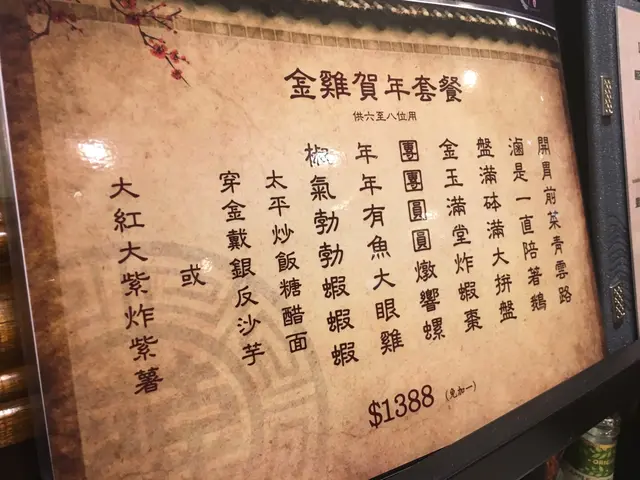 金雞賀年套餐
供六至八位用
開胃前菜青雲路
滷是一直陪著鵝
盤滿砵滿大拼盤
金玉滿堂炸蝦棗
團團圓圓燉響螺
年年有魚大眼雞
椒氣勃勃蝦蝦蝦
太平炒飯糖醋面
穿金戴銀反沙芋
或
大紅大紫炸紫薯
$1388 (免加一)